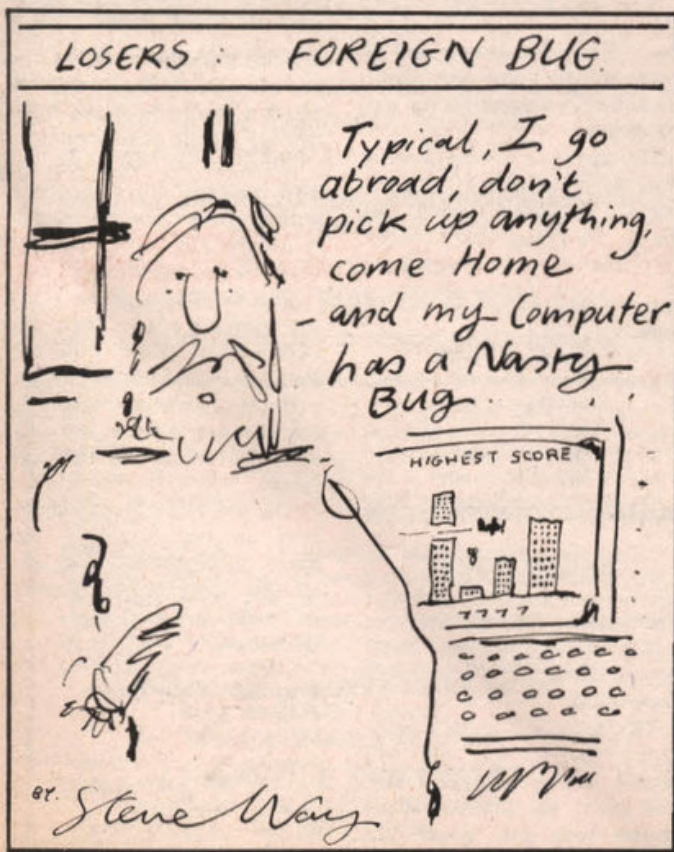 LOSERS : FOREIGN BUG.
Typical, I go
abroad, don't
pick up anything,
come Home
- and my Computer
has a Nasty
Bug.
HIGHEST SCORE
7777
87. Steve Way